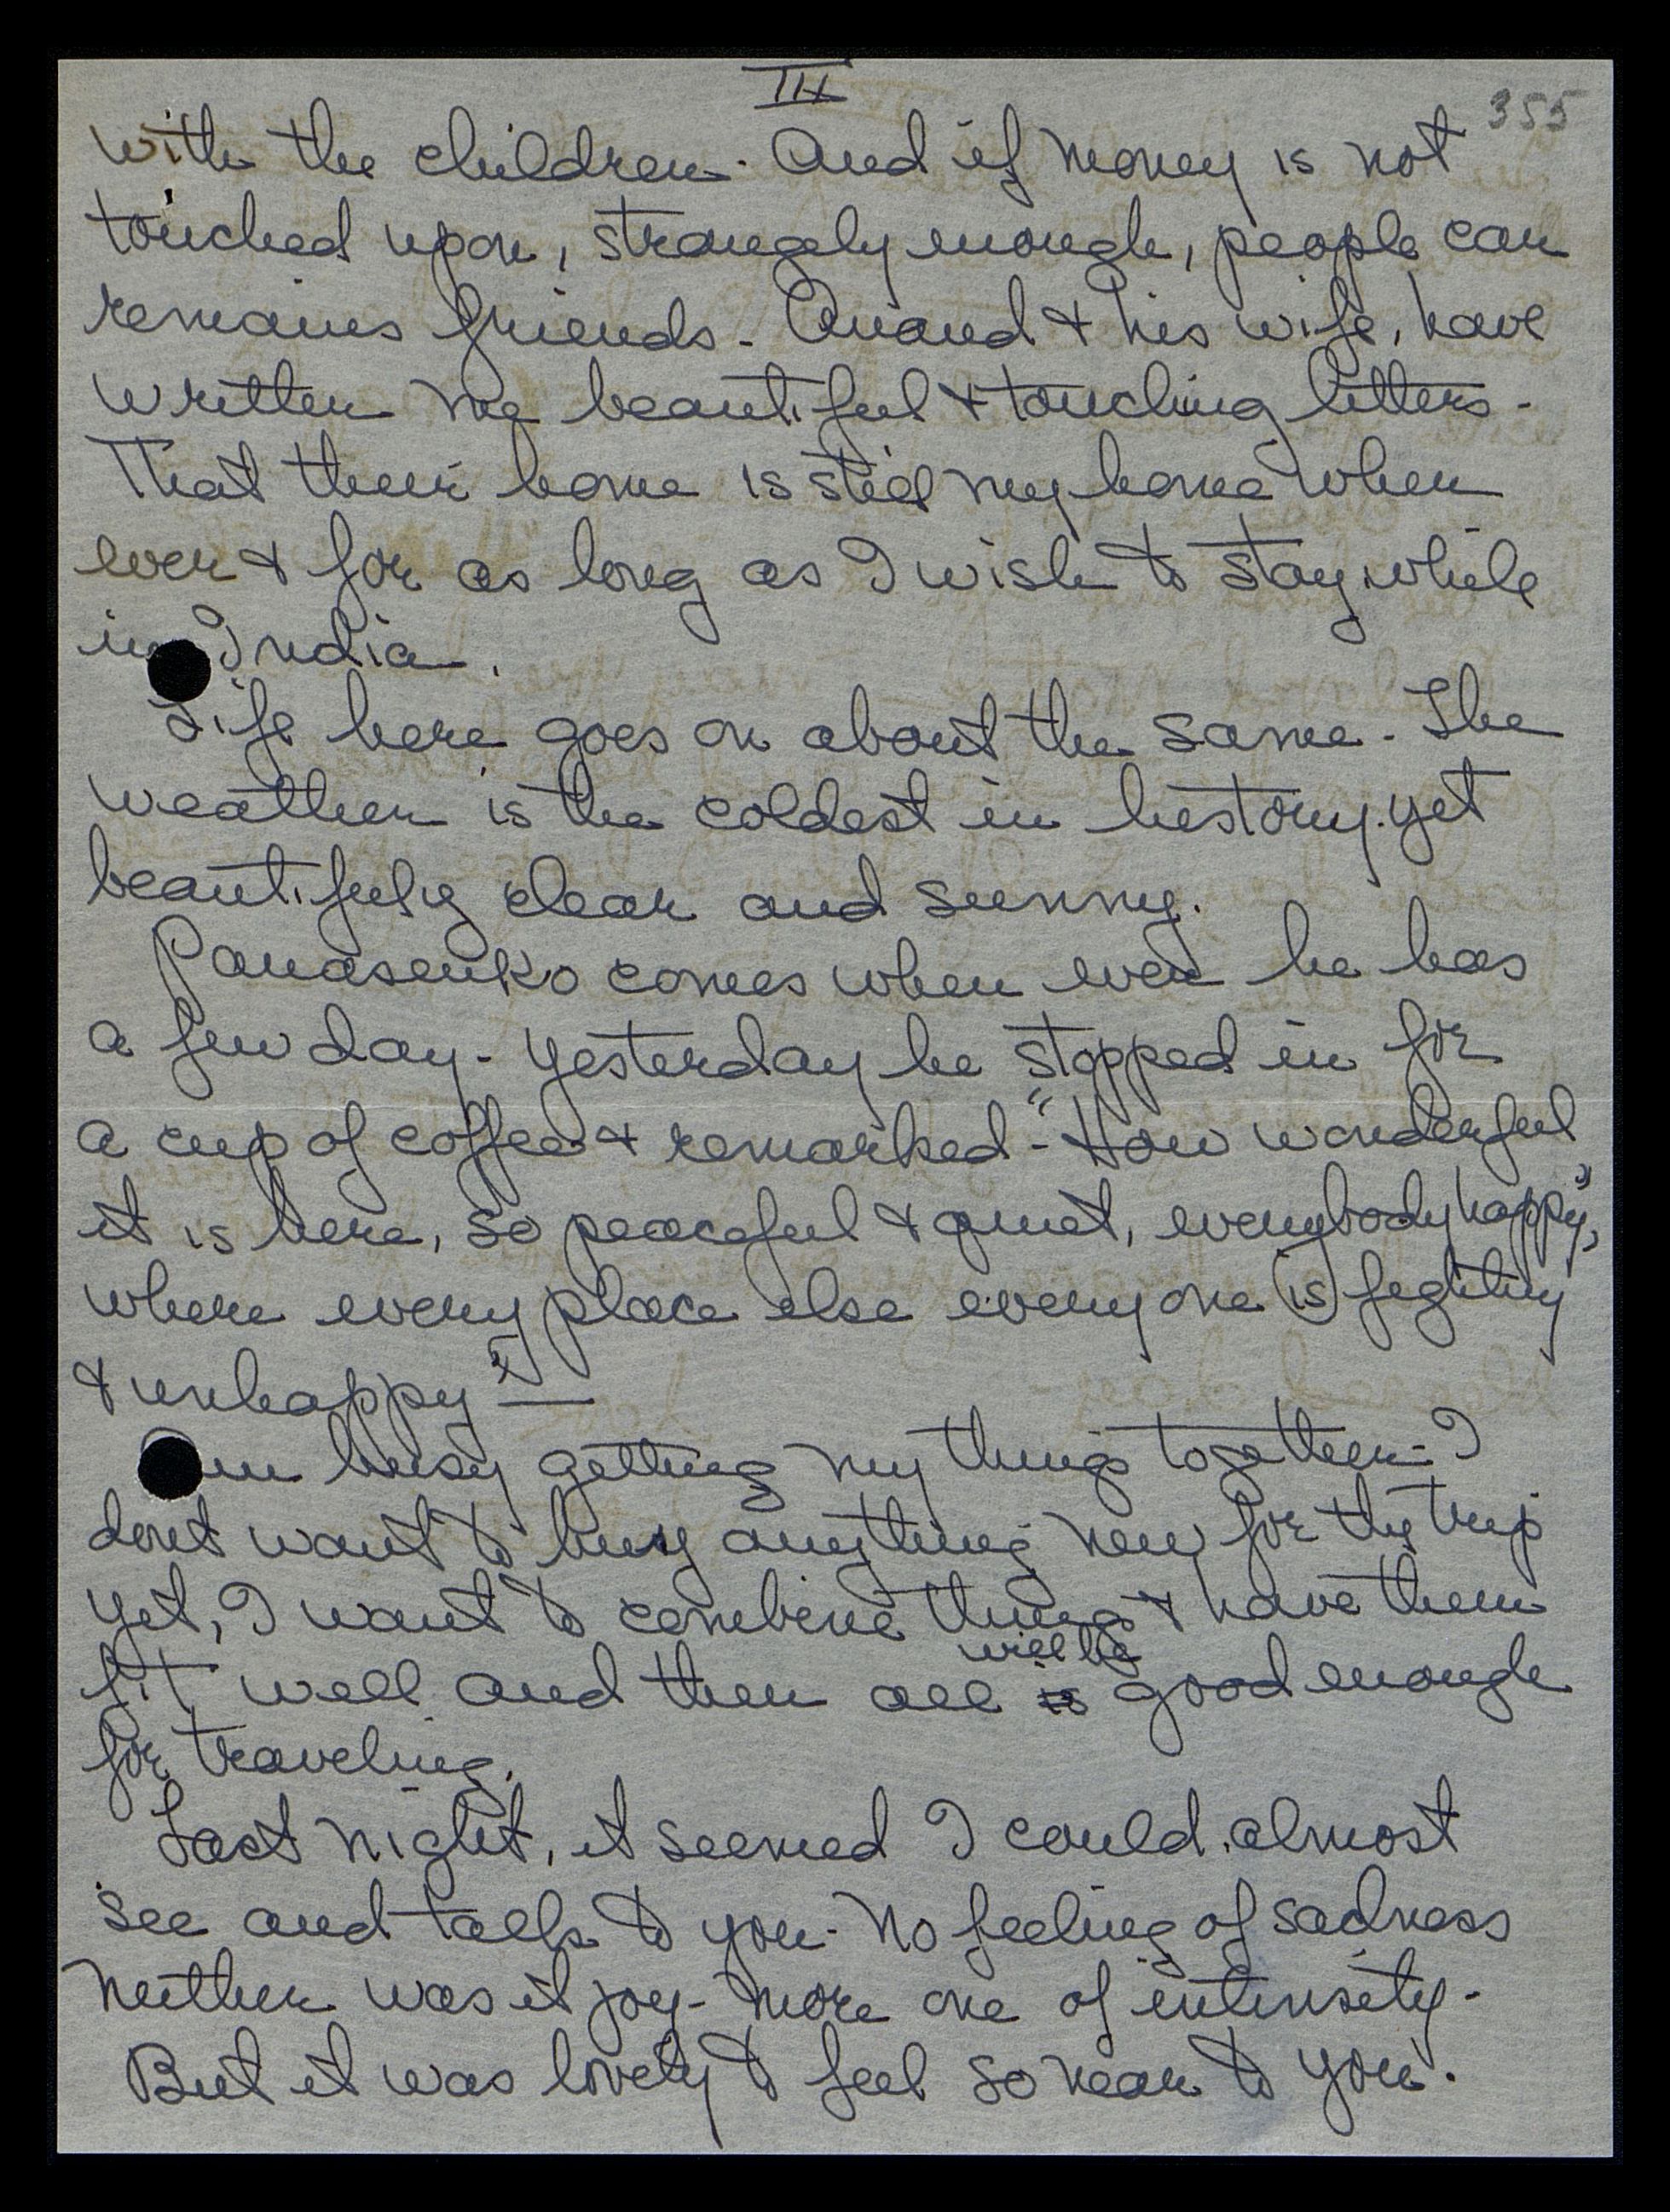 III
355
with the children. And if money is not
touched upon, strangely enough, people can
remaines friends - Anand & his wife, have
written me beautiful & touching letters -
That their home is still my home when
ever & for as long as I wish to stay while
in India.
Life here goes on about the same - The
weather is the coldest in history. yet
beautifuly clear and sunny.
Panasenko comes when ever he has
a few day - Yesterday he stopped in for
a cup of coffee & remarked - "How wonderful
it is here, so peaceful & quiet, everybody happy",
where every place else everyone (is) fighting
& unhappy" —
Am busy getting my things together - I
dont want to buy anything new for the trip
yet, I want to combine things & have them
will be
fit well and then all is good enough
for traveling.
Last night, it seemed I could almost
see and talk to you - No feeling of sadness
neither was it joy - more one of intensity -
But it was lovely to feel so near to you.